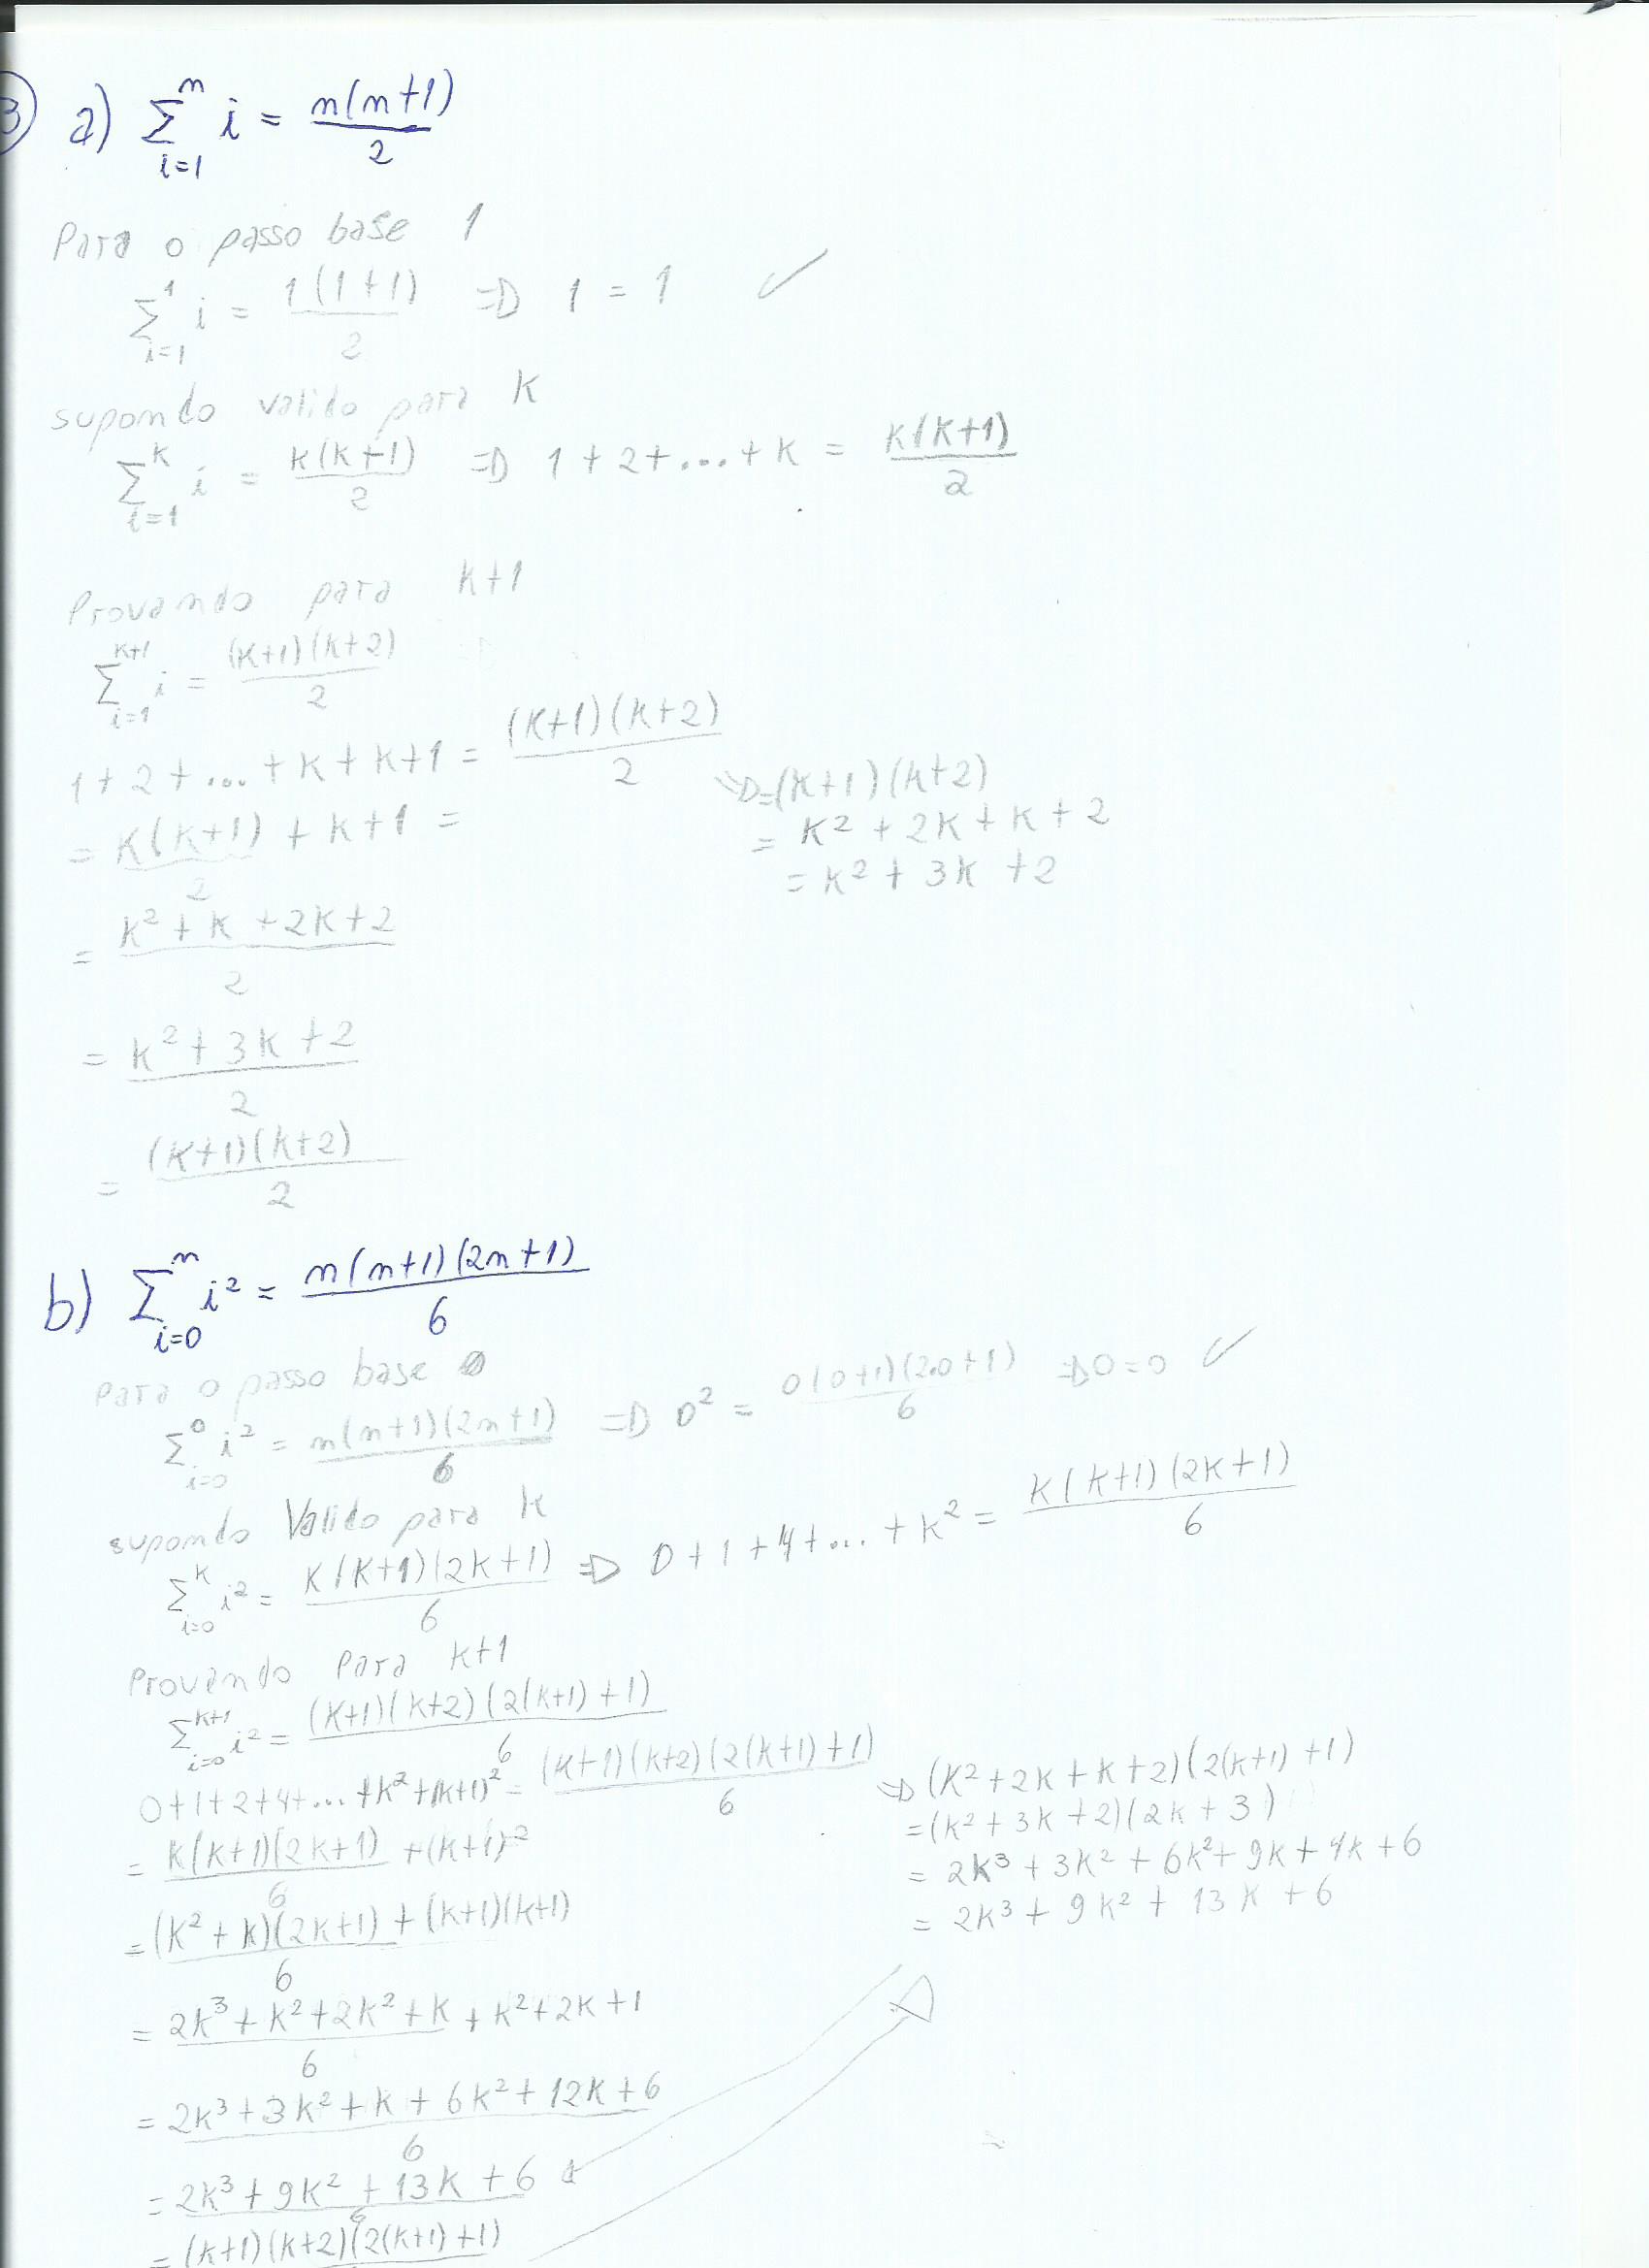 3) a) Σ_{i=1}^{n} i = n(n+1)/2
Para o passo base 1
Σ_{i=1}^{1} i = 1(1+1)/2 => 1 = 1 ✓
supondo valido para K
Σ_{i=1}^{K} i = K(K+1)/2 => 1+2+...+K = K(K+1)/2
Provando para K+1
Σ_{i=1}^{K+1} i = (K+1)(K+2)/2
1+2+...+K+K+1 = (K+1)(K+2)/2
=> =(K+1)(K+2)
= K(K+1)/2 + K+1 =
= K² + 2K + K + 2
= K² + 3K + 2
= (K² + K + 2K + 2)/2
= (K² + 3K + 2)/2
= (K+1)(K+2)/2
b) Σ_{i=0}^{n} i² = n(n+1)(2n+1)/6
Para o passo base 0
Σ_{i=0}^{0} i² = n(n+1)(2n+1)/6 => 0² = 0(0+1)(2.0+1)/6 => 0=0 ✓
supondo Valido para K
Σ_{i=0}^{K} i² = K(K+1)(2K+1)/6 => 0+1+4+...+K² = K(K+1)(2K+1)/6
Provando Para K+1
Σ_{i=0}^{K+1} i² = (K+1)(K+2)(2(K+1)+1)/6
0+1+2+4+...+K²+(K+1)² = (K+1)(K+2)(2(K+1)+1)/6
=> (K²+2K+K+2)(2(K+1)+1)
=(K²+3K+2)(2K+3)
= 2K³ + 3K² + 6K² + 9K + 4K + 6
= 2K³ + 9K² + 13K + 6
= K(K+1)(2K+1)/6 + (K+1)²
= (K²+K)(2K+1)/6 + (K+1)(K+1)
= (2K³+K²+2K²+K)/6 + K²+2K+1
= (2K³+3K²+K+6K²+12K+6)/6
= (2K³+9K²+13K+6)/6
= (K+1)(K+2)(2(K+1)+1)